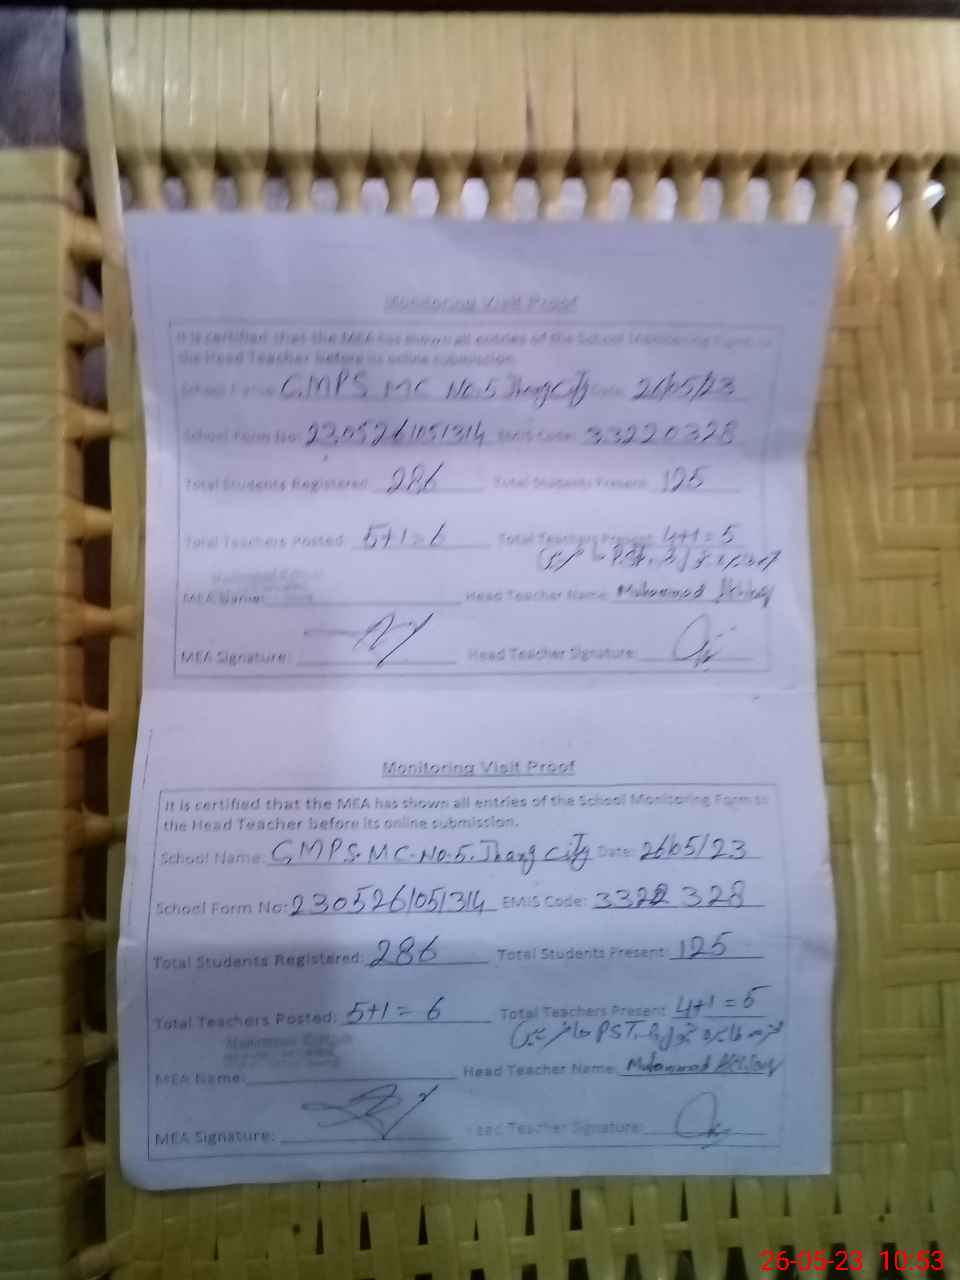 Monitoring Visit Proof
It is certified that the MEA has shown all entries of the School Monitoring Form to
the Head Teacher before its online submission.
School Name: GMPS MC No.5 Jhang City Date: 26/05/23
School Form No: 230526/051314 EMIS Code: 33220328
Total Students Registered: 286 Total Students Present: 125
Total Teachers Posted: 5+1=6 Total Teachers Present: 4+1=5
PST
MEA Name: Head Teacher Name: Muhammad
MEA Signature: Head Teacher Signature:
Monitoring Visit Proof
It is certified that the MEA has shown all entries of the School Monitoring Form to
the Head Teacher before its online submission.
School Name: GMPS. MC. No. 5. Jhang City Date: 26/05/23
School Form No: 230526/051314 EMIS Code: 328
Total Students Registered: 286 Total Students Present: 125
Total Teachers Posted: 5+1= 6 Total Teachers Present: 4+1=5
PST
MEA Name: Head Teacher Name: Muhammad
MEA Signature: Head Teacher Signature:
26-05-23 10:53